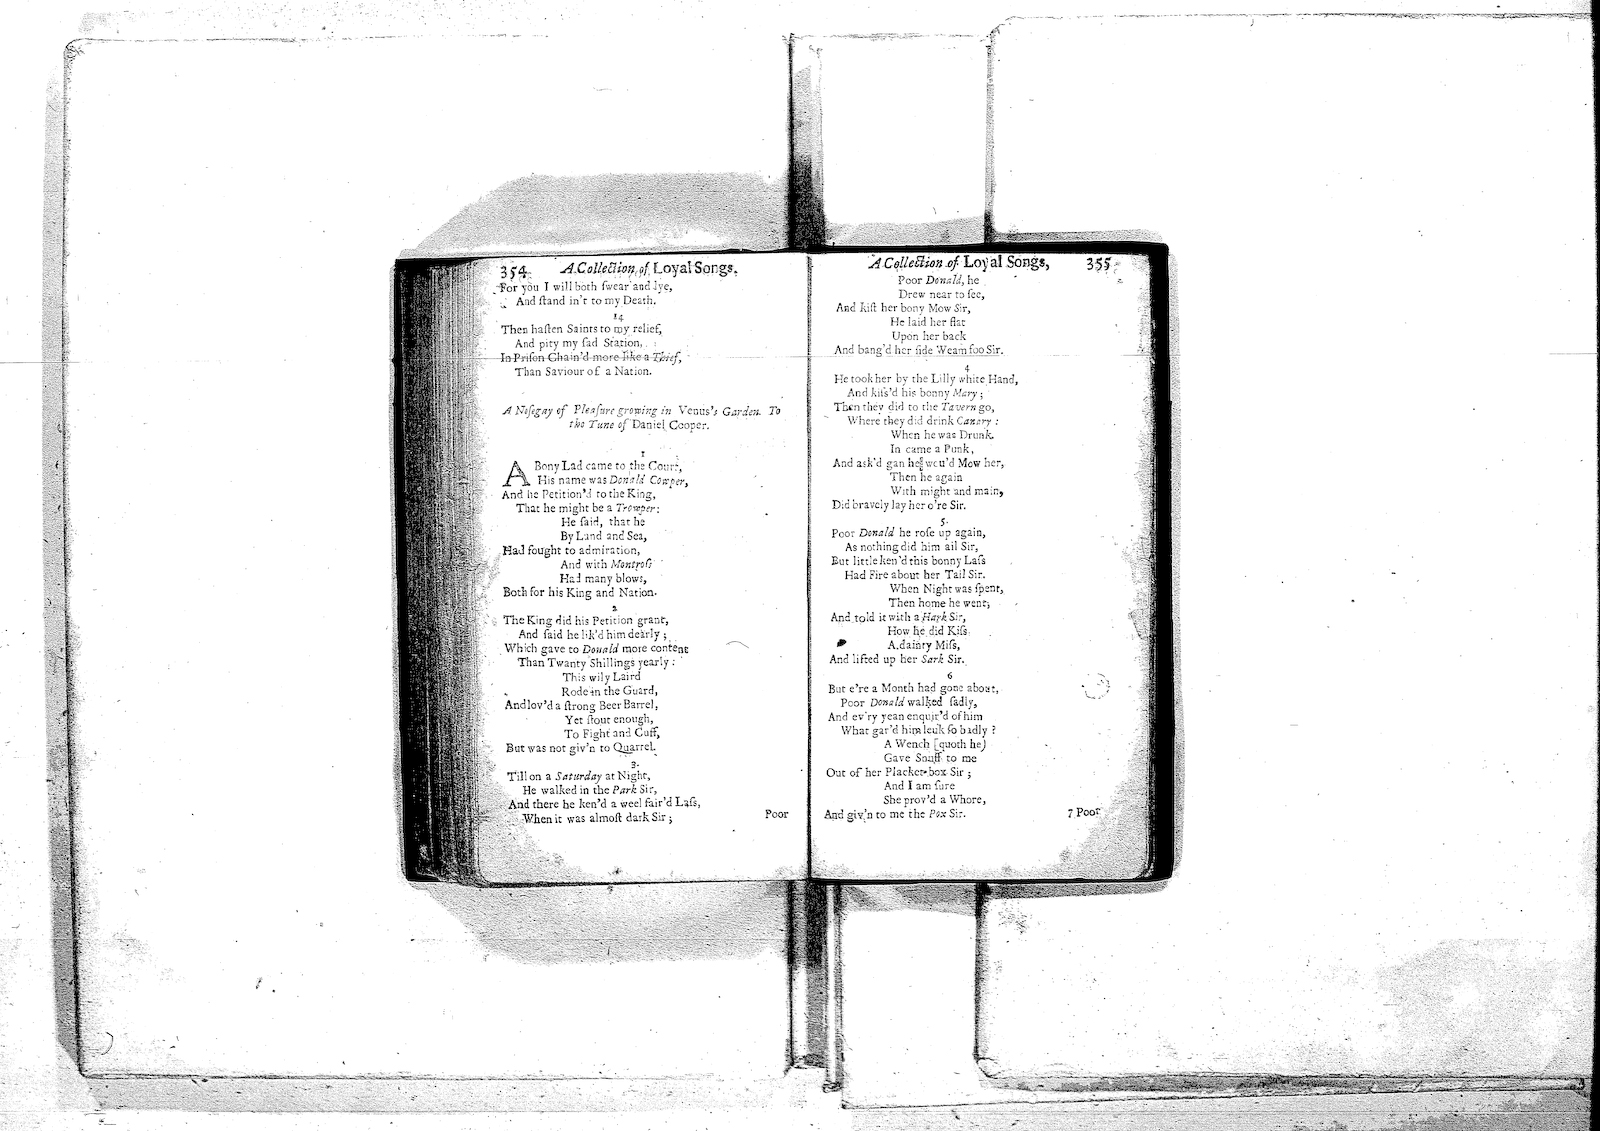 354 A Collection of Loyal Songs.
For you I will both ſwear and lye,
And ſtand in't to my Death.
14
Then haſten Saints to my relief,
And pity my ſad Station,
In Priſon Chain'd more like a Thief,
Than Saviour of a Nation.
A Noſegay of Pleaſure growing in Venus's Garden. To
the Tune of Daniel Cooper.
1
A Bony Lad came to the Court,
His name was Donald Cowper,
And he Petition'd to the King,
That he might be a Trowper:
He ſaid, that he
By Land and Sea,
Had fought to admiration,
And with Montroſs
Had many blows,
Both for his King and Nation.
2
The King did his Petition grant,
And ſaid he lik'd him dearly;
Which gave to Donald more content
Than Twanty Shillings yearly:
This wily Laird
Rode in the Guard,
And lov'd a ſtrong Beer Barrel,
Yet ſtout enough,
To Fight and Cuff,
But was not giv'n to Quarrel.
3.
Till on a Saturday at Night,
He walked in the Park Sir,
And there he ken'd a weel fair'd Laſs,
When it was almoſt dark Sir;
Poor
A Collection of Loyal Songs, 355
Poor Donald, he
Drew near to ſee,
And kiſt her bony Mow Sir,
He laid her flat
Upon her back
And bang'd her ſide Weam foo Sir.
4
He took her by the Lilly white Hand,
And kiſs'd his bonny Mary;
Then they did to the Tavern go,
Where they did drink Canary:
When he was Drunk.
In came a Punk,
And ask'd gan he wou'd Mow her,
Then he again
With might and main,
Did bravely lay her o're Sir.
5.
Poor Donald he roſe up again,
As nothing did him ail Sir,
But little ken'd this bonny Laſs
Had Fire about her Tail Sir.
When Night was ſpent,
Then home he went;
And told it with a Hark Sir,
How he did Kiſs
A dainty Miſs,
And lifted up her Sark Sir.
6
But e're a Month had gone about,
Poor Donald walked ſadly,
And ev'ry yean enquir'd of him
What gar'd him leuk ſo badly?
A Wench [quoth he)
Gave Snuff to me
Out of her Placket-box Sir;
And I am ſure
She prov'd a Whore,
And giv'n to me the Pox Sir.
7 Poor